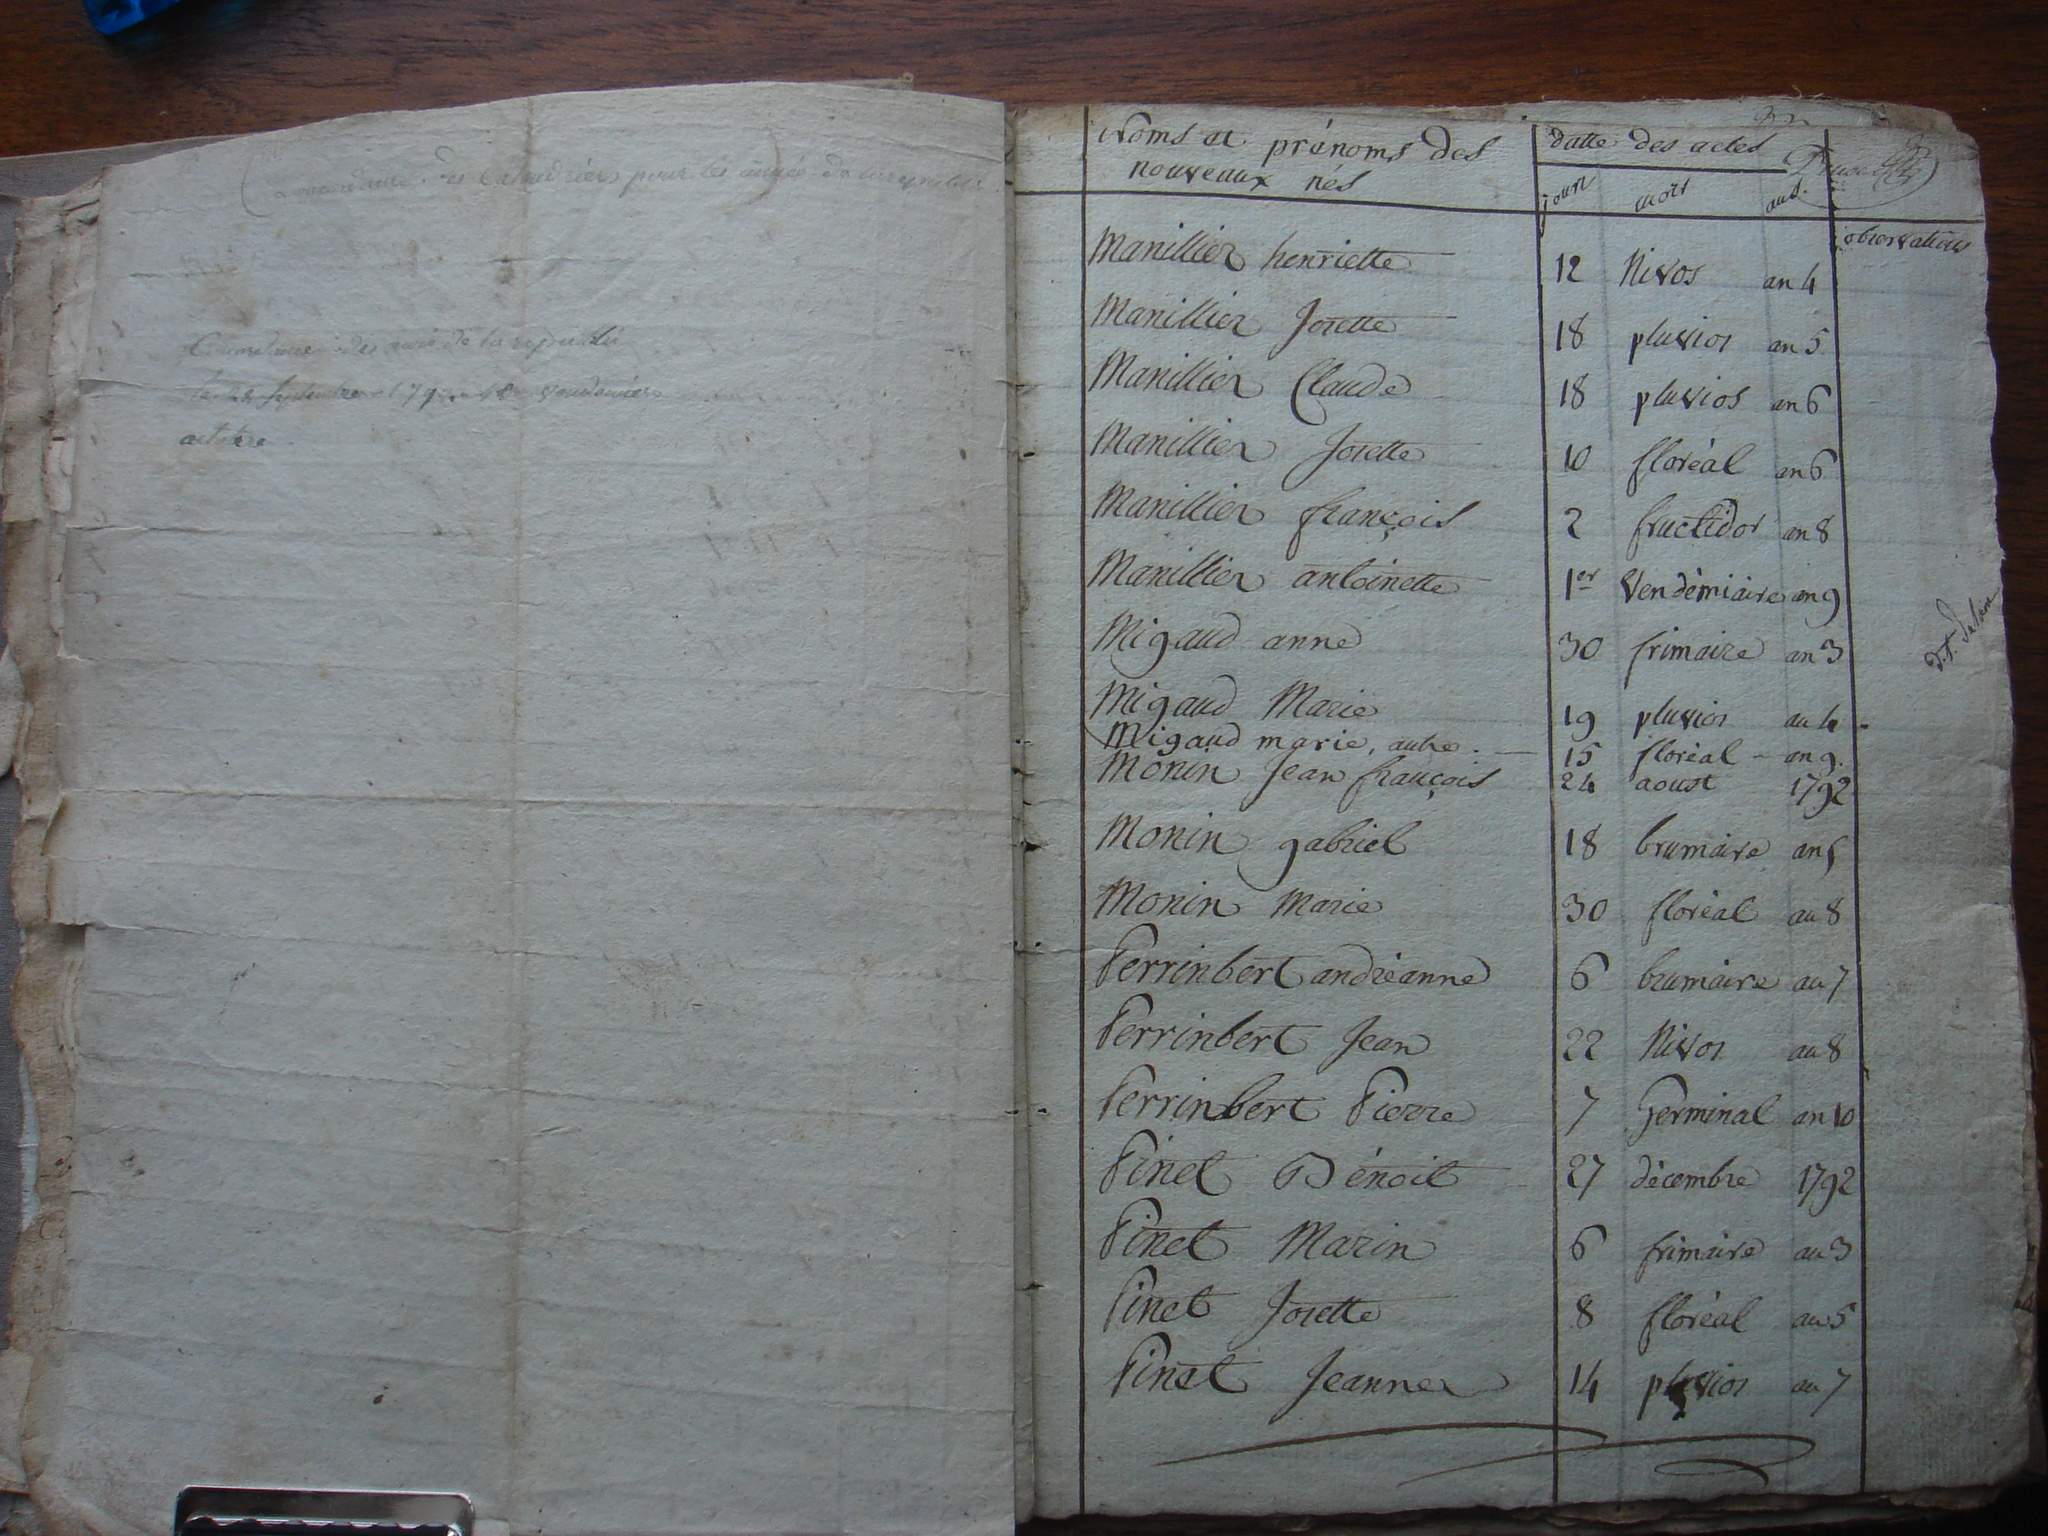 des Calendriers pour les années de la
des de la
septembre 179 vendemiere
octobre
Noms et prénoms des datte des actes
nouveaux nés jours mois ans.
observations
Manillier henriette 12 Nivos an 4
Manillier Josette 18 pluvios an 5
Manillier Claude 18 pluvios an 6
Manillier Josette 10 floréal an 6
Manillier françois 2 fructidor an 8
Manillier antoinette 1er Vendémiaire an 9
Migaud anne 30 frimaire an 3
Migaud Marie 19 pluvios an 4
Migaud marie, autre. 15 floréal - an 9.
Monin Jean françois 24 aoust 1792
Monin gabriel 18 brumaire an 5
Monin Marie 30 floréal an 8
Perrinbert andréanne 6 brumaire an 7
Perrinbert Jean 22 Nivos an 8
Perrinbert Pierre 7 Germinal an 10
Pinet Bénoit 27 décembre 1792
Pinet Marin 6 frimaire an 3
Pinet Josette 8 floréal an 5
Pinet Jeanne 14 pluvios an 7